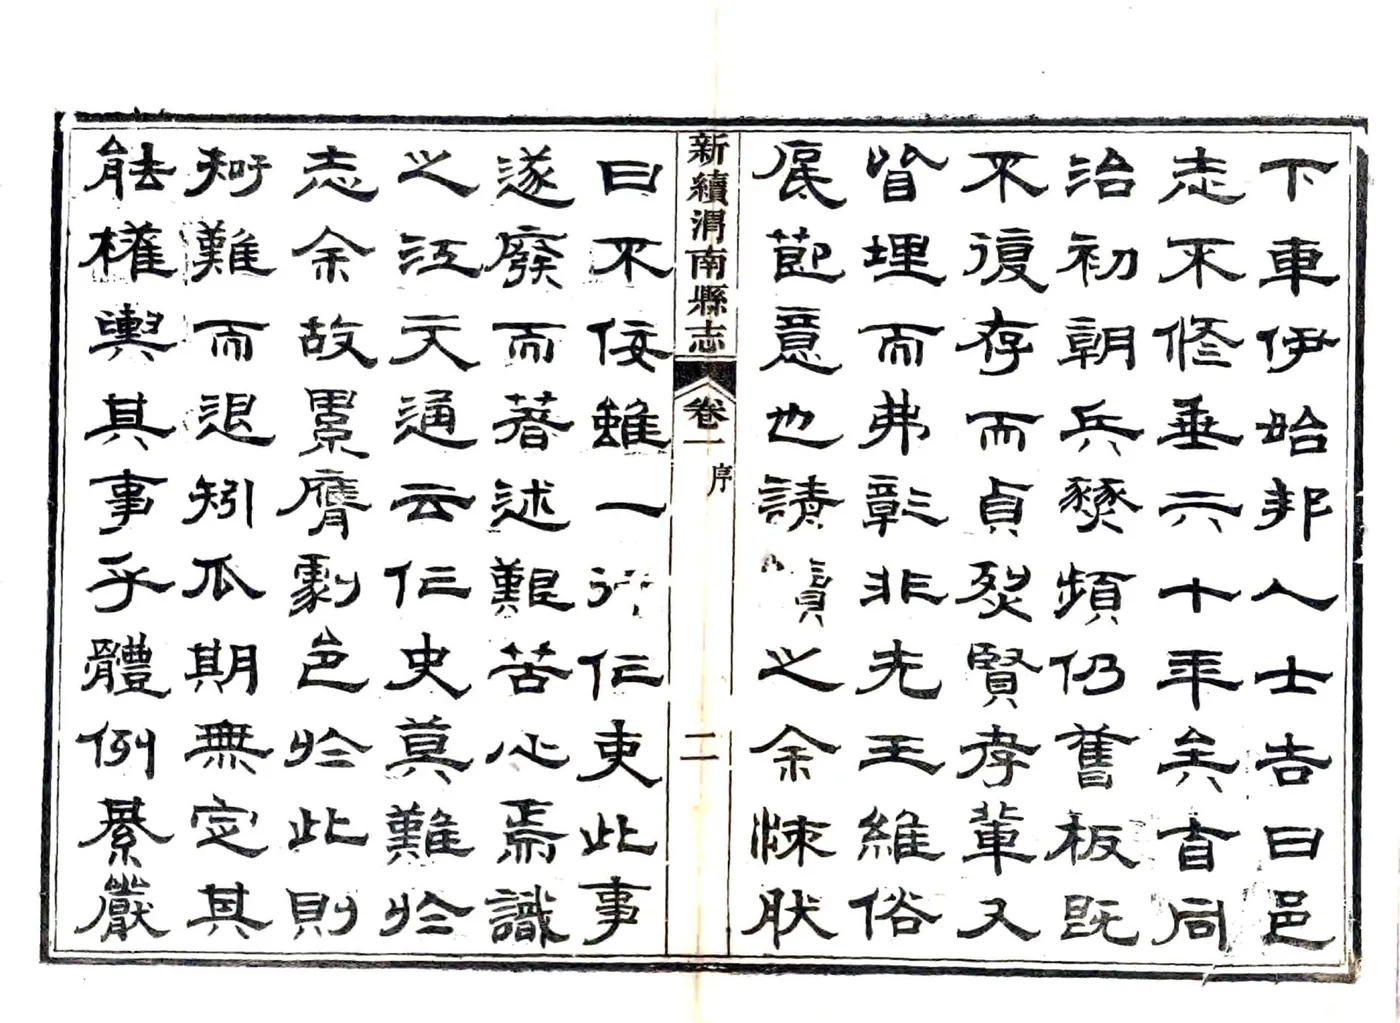 下車伊始邦人士告曰邑
志不修垂六十年矣首同
治初朝兵燹頻仍舊板既
不復存而貞烈賢孝輩又
皆埋而弗彰非先王維俗
底節意也請續之余悚肰
新續渭南縣志 卷一 序 二
曰不佞雖一行作吏此事
遂廢而著述艱苦心焉識
之江文通云作史莫難於
志余故累膺劇邑於此則
知難而退矧瓜期無定其
能權輿其事乎體例綦嚴